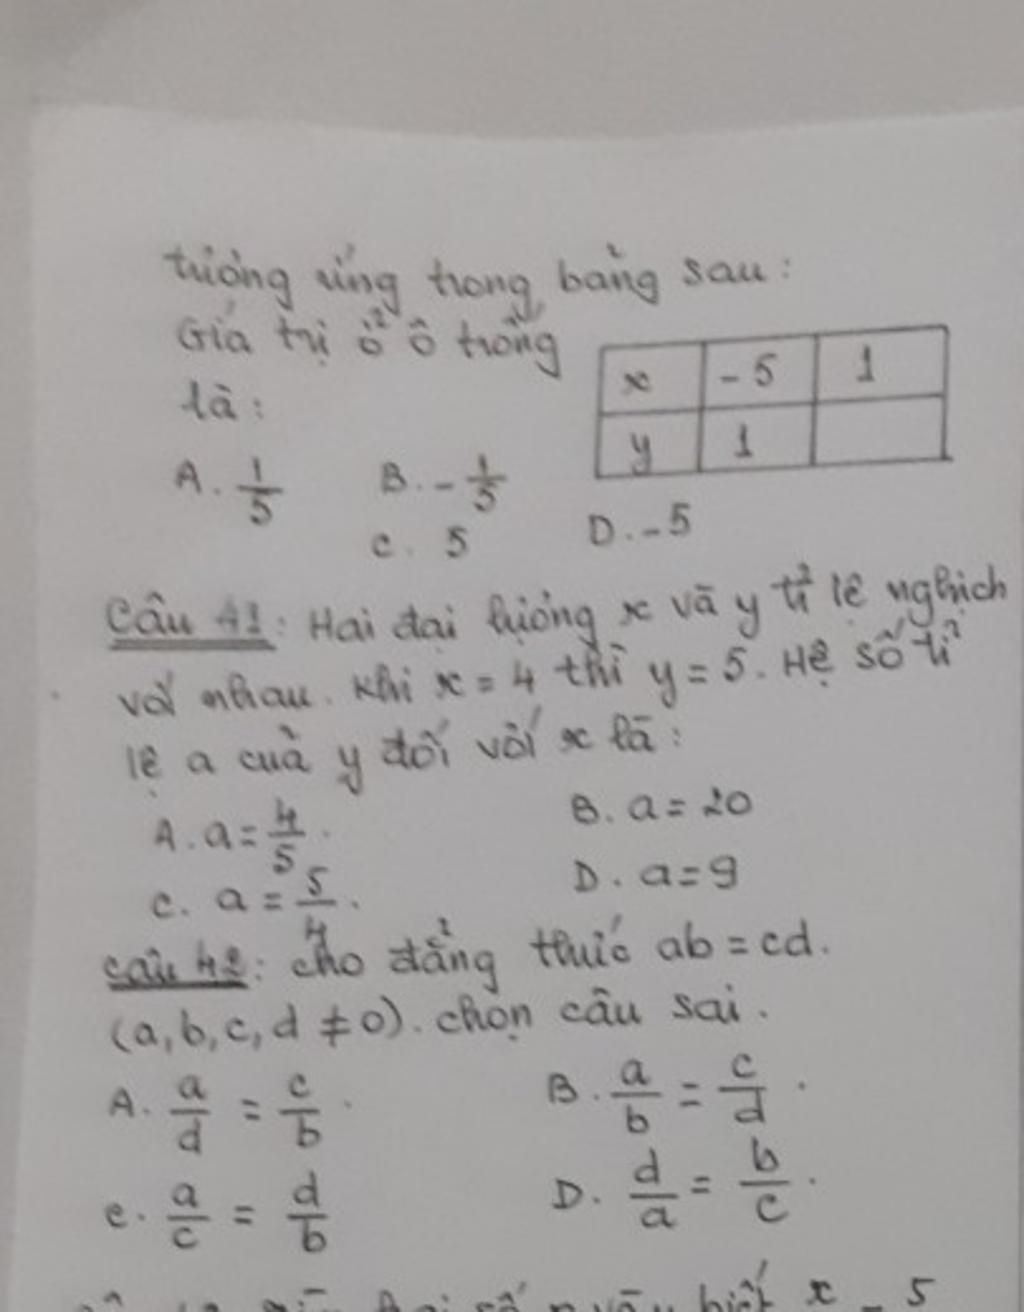 tương ứng trong bảng sau:
Giá trị ở ô trống
là:
x -5 1
y 1
A. 1/5 B. -1/5
C. 5 D. -5
Câu 41: Hai đại lượng x và y tỉ lệ nghịch
với nhau. Khi x = 4 thì y = 5. Hệ số tỉ
lệ a của y đối với x là:
A. a = 4/5. B. a = 20
C. a = 5/4. D. a = 9
Câu 42: Cho đẳng thức ab = cd.
(a, b, c, d ≠ 0). chọn câu sai.
A. a/d = c/b. B. a/b = c/d.
C. a/c = d/b D. d/a = b/c.
biết x 5